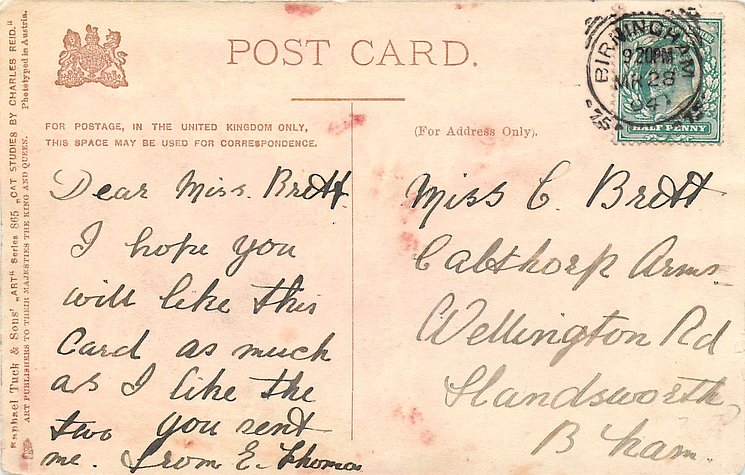 POST CARD.
BIRMINGHAM
9 20PM
MR 28
04
75
HALF PENNY
FOR POSTAGE, IN THE UNITED KINGDOM ONLY,
THIS SPACE MAY BE USED FOR CORRESPONDENCE.
(For Address Only).
Dear Miss. Brett
I hope you
will like this
Card as much
as I like the
two you sent
me. From E. Thomas
Miss C. Brett
Calthorp Arms
Wellington Rd
Handsworth
B'ham.
Raphael Tuck & Sons' „ART" Series 865 „CAT STUDIES BY CHARLES REID."
ART PUBLISHERS TO THEIR MAJESTIES THE KING AND QUEEN.
Phototyped in Austria.